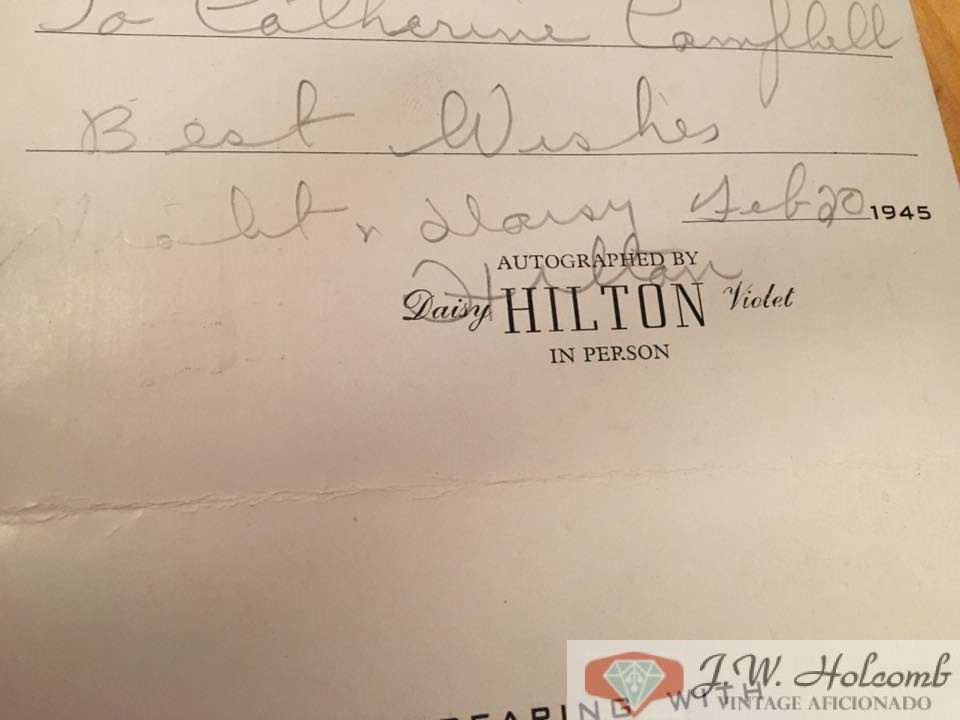 To Catherine Campbell
Best Wishes
Violet & Daisy Feb 20 1945
Hilton
AUTOGRAPHED BY
Daisy HILTON Violet
IN PERSON
WITH
J.W. Holcomb
VINTAGE AFICIONADO